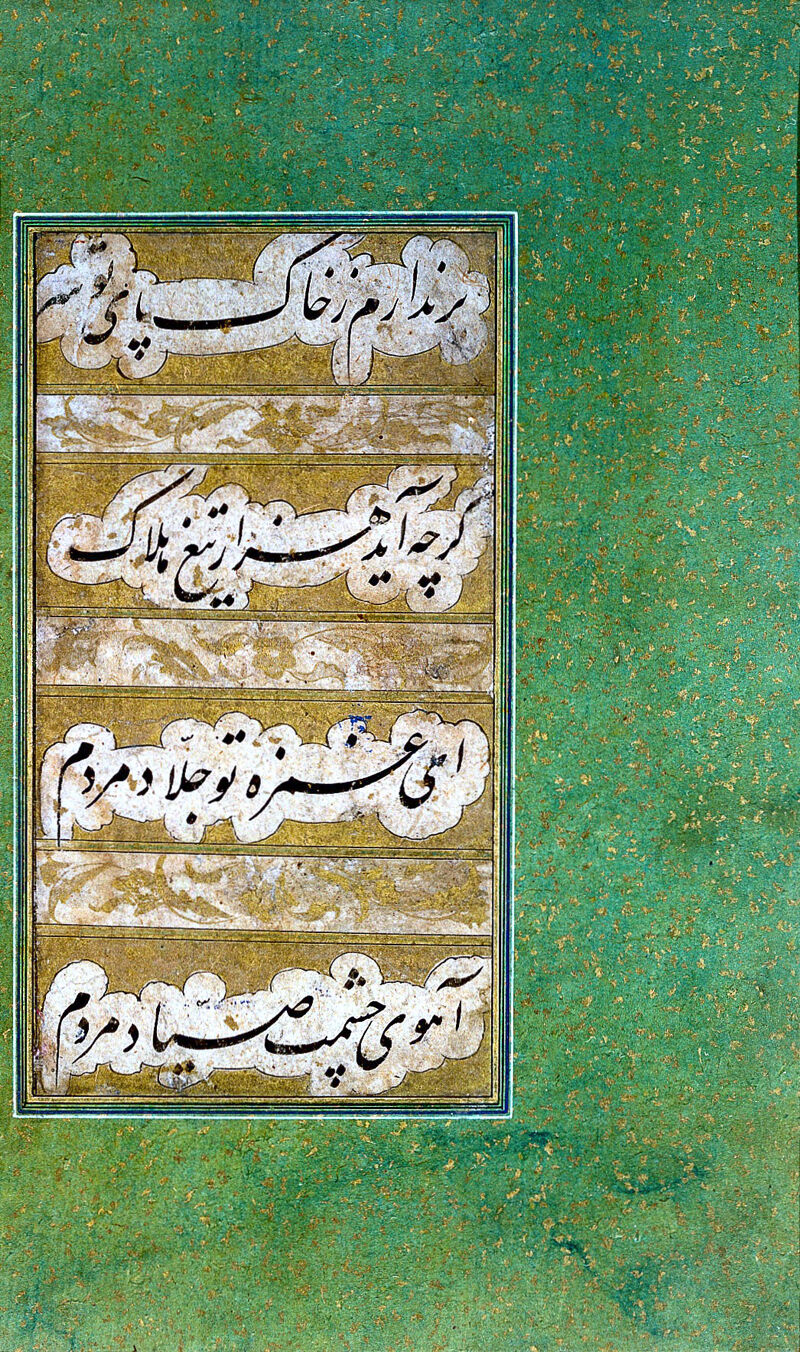 برندارم ز خاک پای تو سر
گرچه آید هزار تیغ هلاک
ای غمزه تو جلّاد مردم
آهوی چشمت صیاد مردم